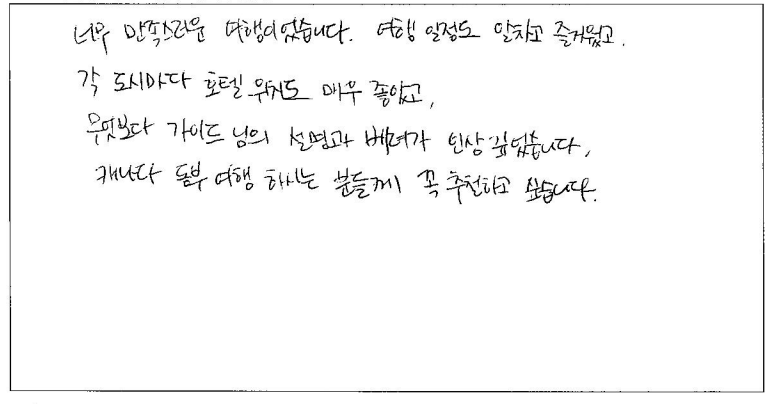 너무 만족스러운 여행이었습니다. 여행 일정도 알차고 즐거웠고.
각 도시마다 호텔 위치도 매우 좋았고,
무엇보다 가이드 님의 설명과 배려가 인상 깊었습니다.
캐나다 동부 여행 하시는 분들께 꼭 추천하고 싶습니다.